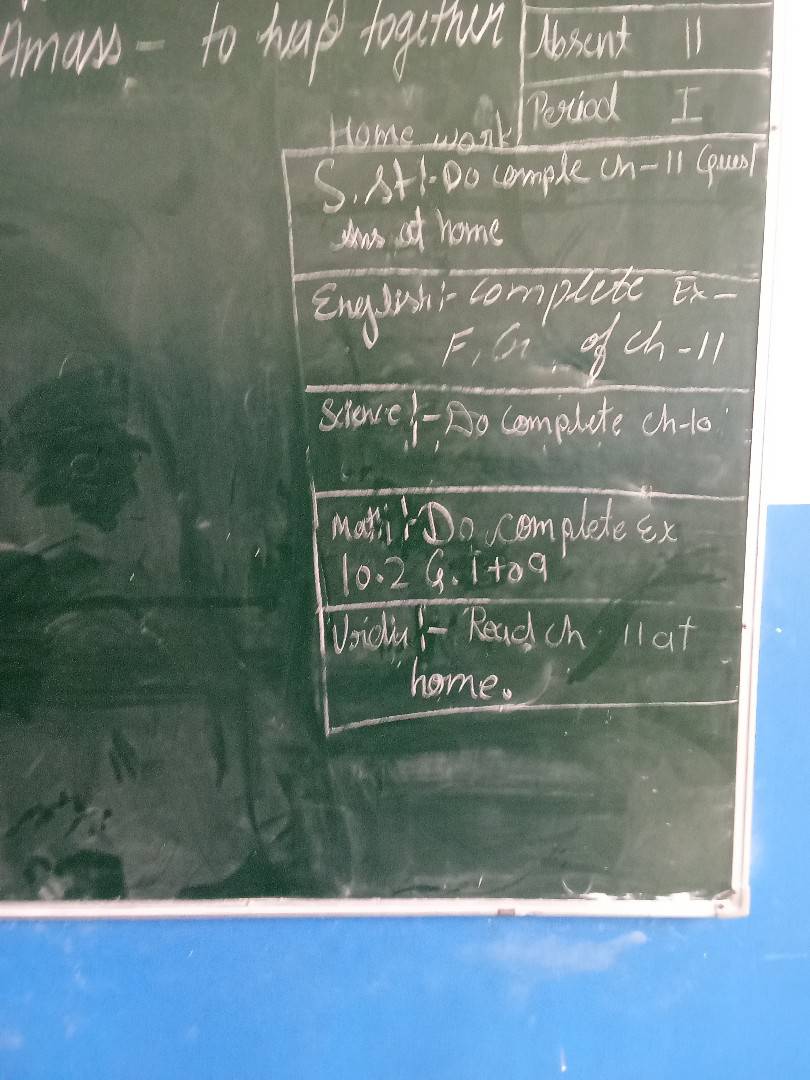 Amass - to heap together
Absent 11
Period I
Home work
S.St :- Do comple ch-11 Ques/
Ans at home
English :- complete Ex-
F, G, of ch-11
Science :- Do complete ch-10
Math :- Do complete Ex
10.2 Q. 1 to 9
:- Read ch 11 at
home.